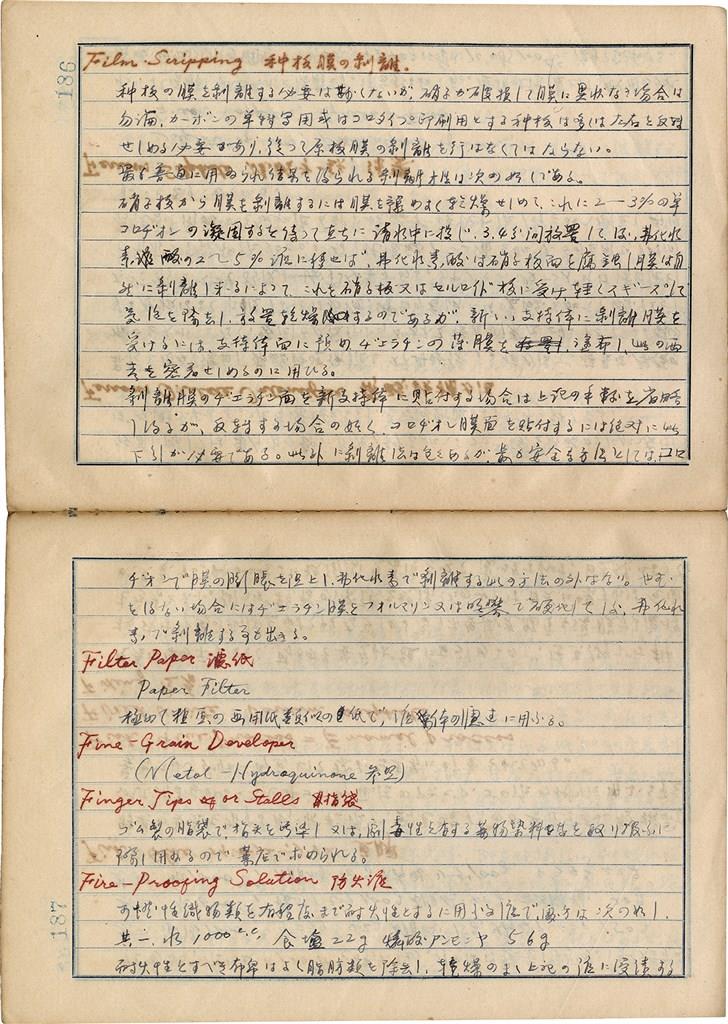 186
Film Scripping 種板膜の剥離.
種板の膜を剥離する必要は尠くないが、硝子が破損して膜に異状なき場合は
勿論、カーボンの単転写用或はコロタイプ印刷用とする種板は多くは左右を反対
せしめる必要があり、従つて原板膜の剥離を行はなくてはならない。
最も普通に用ゐられ結果を得られる剥離法は次の如くである。
硝子板から膜を剥離するには膜を乾燥せしめて、これに2—3%の単
コロヂオンの凝固するを待つて直ちに清水中に投じ、3.4分间放置して後、弗化水
素酸の2〜5%液に移せば、弗化水素酸は硝子板面を腐蝕し膜は自
然に剥離し来るによつて、これを硝子板又はセルロイド板に受け、軽くスキージして
気泡を去し、放置乾燥するのであるが、新しい支持体に剥離膜を
受けるには、支持体面に予めゼラチンの薄膜を塗布し、此の両
者を密着せしめるのに用ひる。
剥離膜のゼラチン面を新支持体に貼付する場合は上記の手数を省略
し得るが、反対する場合の如く、コロヂオン膜面を貼付するには絶対に此
下引が必要である。此外に剥離法は色々あるが、最も安全な方法としては、コロ
ヂオンで膜の膨脹を阻止し、弗化水素で剥離する此の方法の外はない。やむ
を得ない場合にはゼラチン膜をフォルマリン又は明礬で硬化して後、弗化水
素で剥離する事も出来る。
Filter Paper 濾紙
Paper Filter
極めて粗厚の画用紙類似の紙で、液体の濾過に用ふる。
Fine-Grain Developer
(Metol-Hydroquinone 参照)
Finger Tips or Stalls 指袋
ゴム製の指袋で、指先を汚染し又は、劇毒性を有する薬物染料等を取り扱ふに
際し用ゐるので薬店で求められる。
Fire-Proofing Solution 防火液
可燃性織物類を有程度まで耐火性とするに用ふる液で、處方は次の如し.
其一、水 1000 c.c. 食塩 22g 燐酸アンモニヤ 56g
耐火性とすべき布帛はよく脂肪類を除去し、乾燥のまゝ上記の液に浸漬する
187